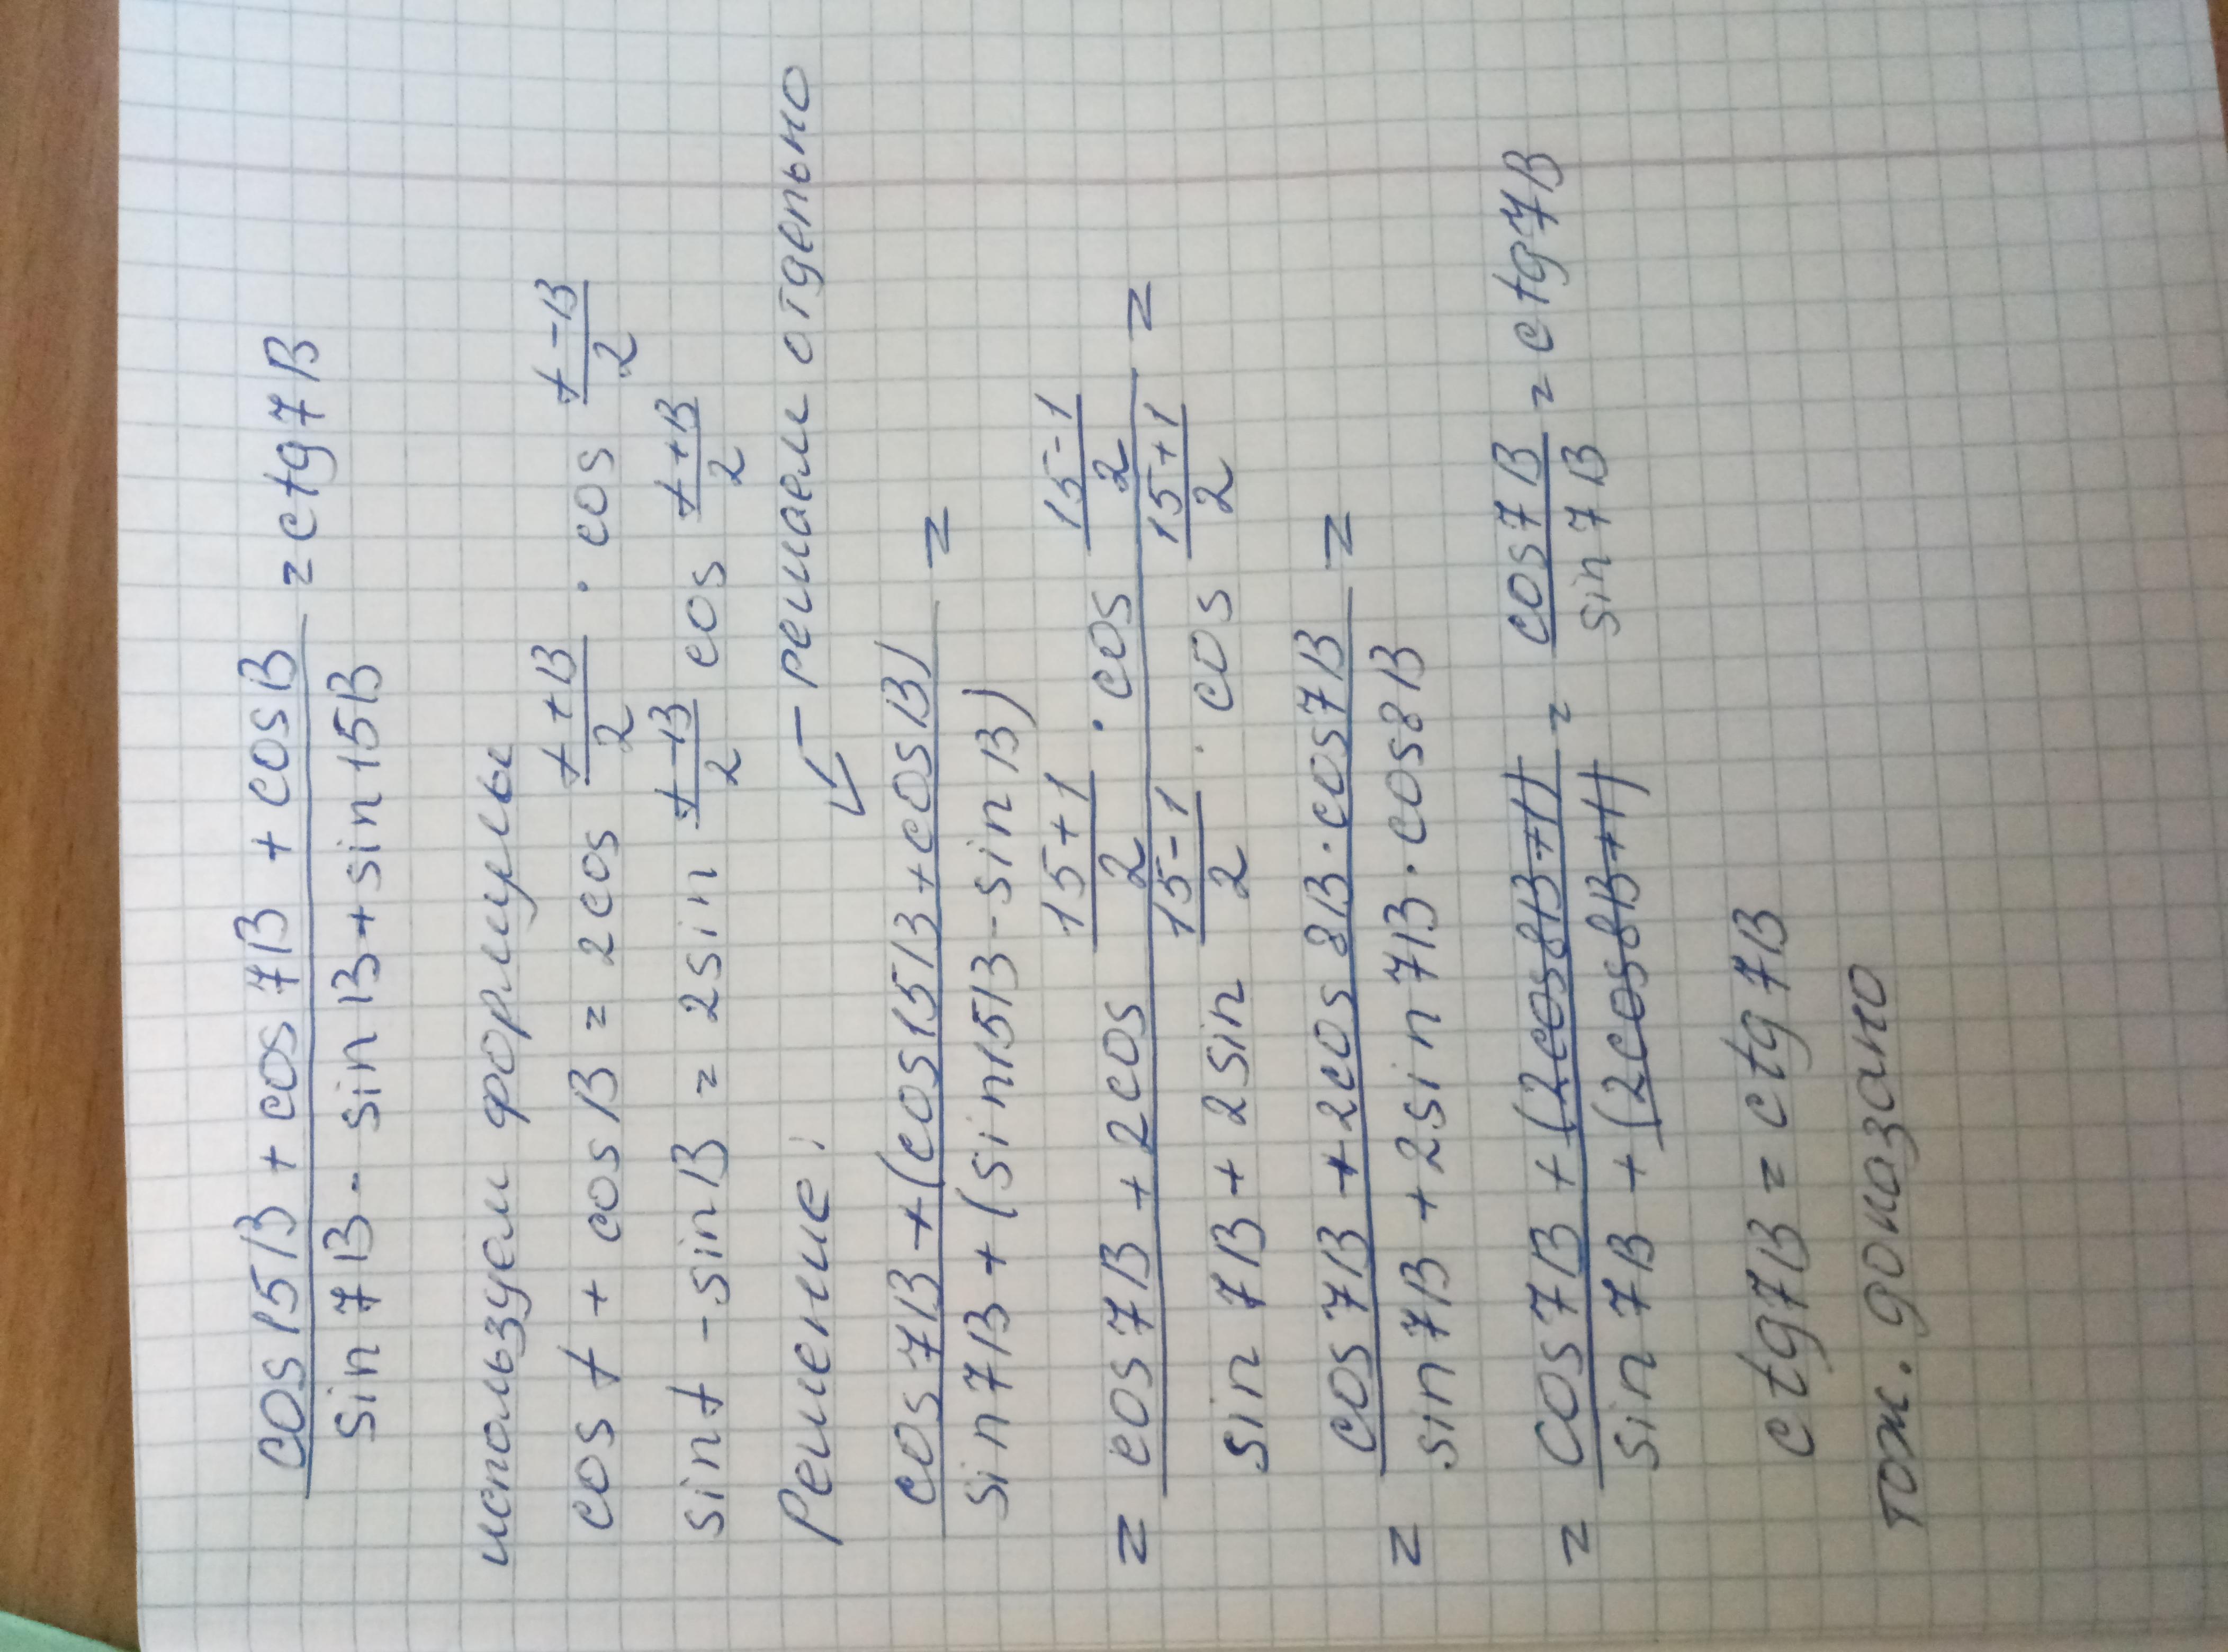 cos15β + cos7β + cosβ / sin7β - sinβ + sin15β = ctg7β
используем формулы
cos t + cosβ = 2cos (t+β)/2 · cos (t-β)/2
sin t - sinβ = 2sin (t-β)/2 cos (t+β)/2
Решение: ↙ решаем отдельно
cos7β + (cos15β + cosβ) / sin7β + (sin15β - sinβ) =
= cos7β + 2cos (15+1)/2 · cos (15-1)/2 / sin7β + 2sin (15-1)/2 · cos (15+1)/2 =
= cos7β + 2cos8β · cos7β / sin7β + 2sin7β · cos8β =
= cos7β + (2cos8β+1) / sin7β + (2cos8β+1) = cos7β / sin7β = ctg7β
ctg7β = ctg7β
тож. доказано